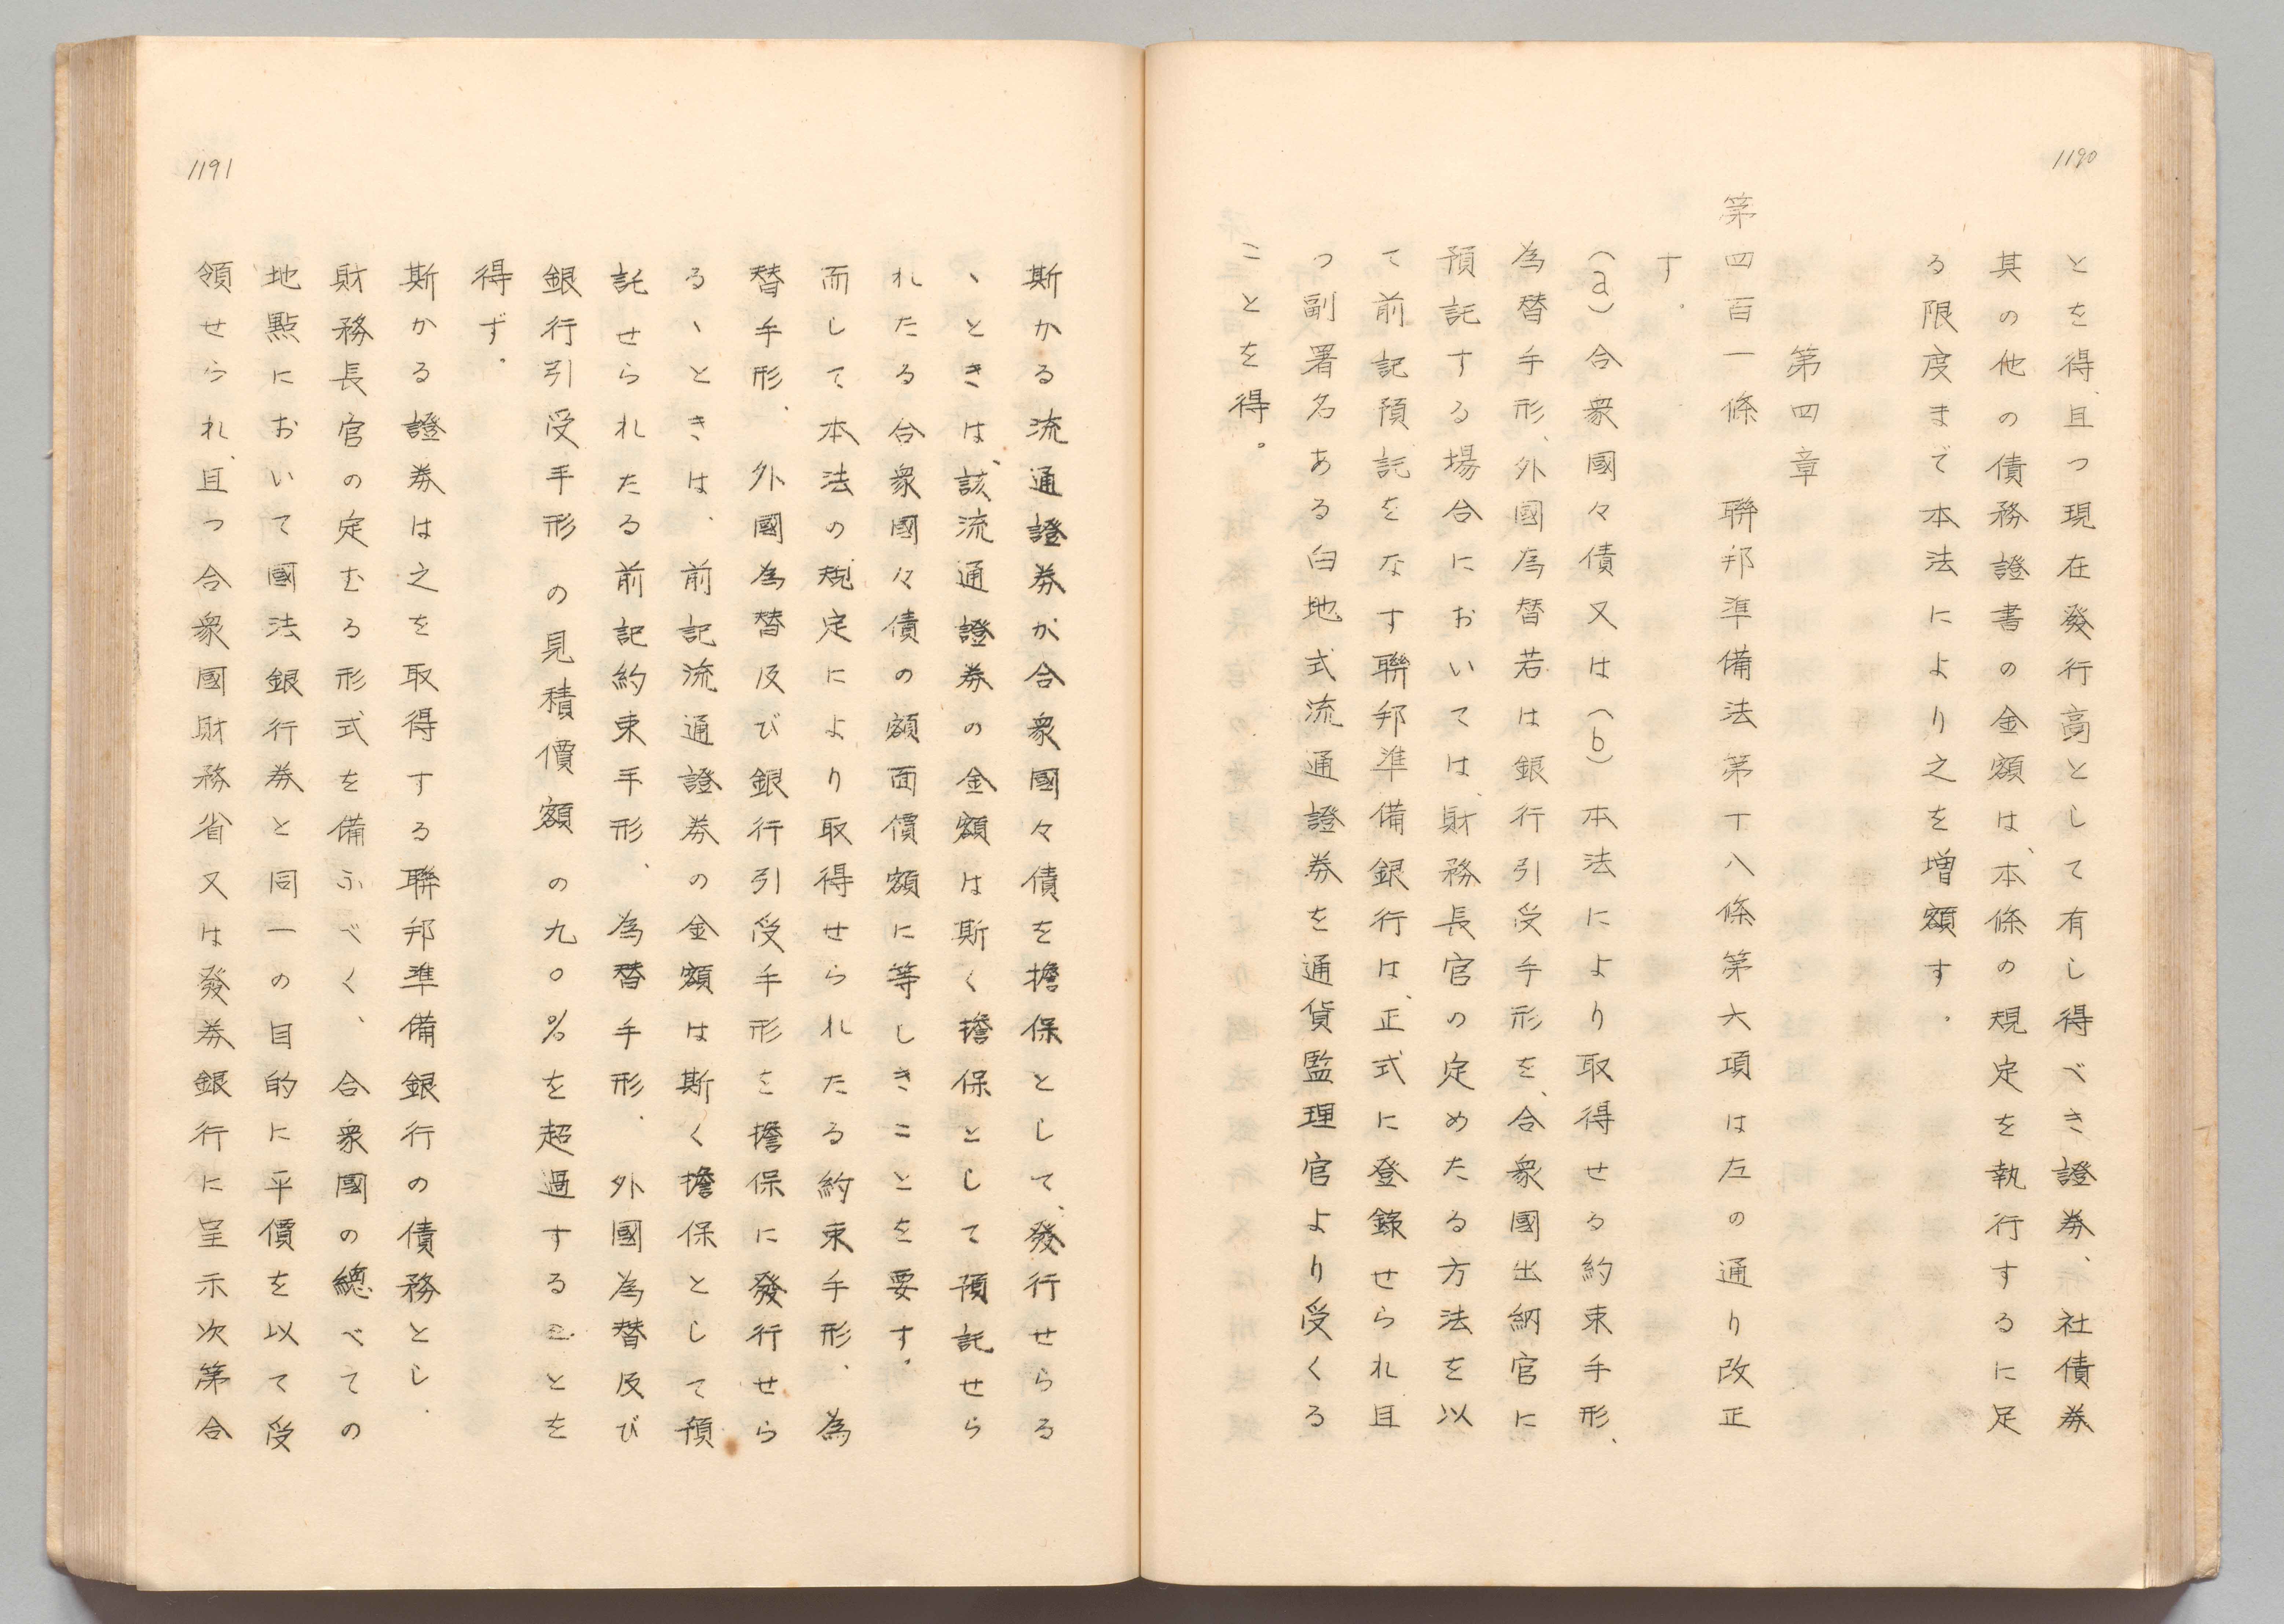 1190
とを得、且つ現在發行高として有し得べき證券、社債券
其の他の債務證書の金額は、本條の規定を執行するに足
る限度まで本法により之を増額す。
第四章
第四百一條　聯邦準備法第十八條第六項は左の通り改正
す。
(a)合衆國々債又は(b)本法により取得せる約束手形、
為替手形、外國為替若は銀行引受手形を、合衆國出納官に
預託する場合においては、財務長官の定めたる方法を以
て前記預託をなす聯邦準備銀行は、正式に登錄せられ且
つ副署名ある白地式流通證券を通貨監理官より受くる
ことを得。
1191
斯かる流通證券が合衆國々債を擔保として、發行せらる
ゝときは、該流通證券の金額は斯く擔保として預託せら
れたる合衆國々債の額面價額に等しきことを要す。
而して本法の規定により取得せられたる約束手形、為
替手形、外國為替及び銀行引受手形を擔保に發行せら
るゝときは、前記流通證券の金額は斯く擔保として預
託せられたる前記約束手形、為替手形、外國為替及び
銀行引受手形の見積價額の九〇％を超過することを
得ず。
斯かる證券は之を取得する聯邦準備銀行の債務とし、
財務長官の定むる形式を備ふべく、合衆國の總べての
地點において國法銀行券と同一の目的に平價を以て受
領せられ、且つ合衆國財務省又は發券銀行に呈示次第合